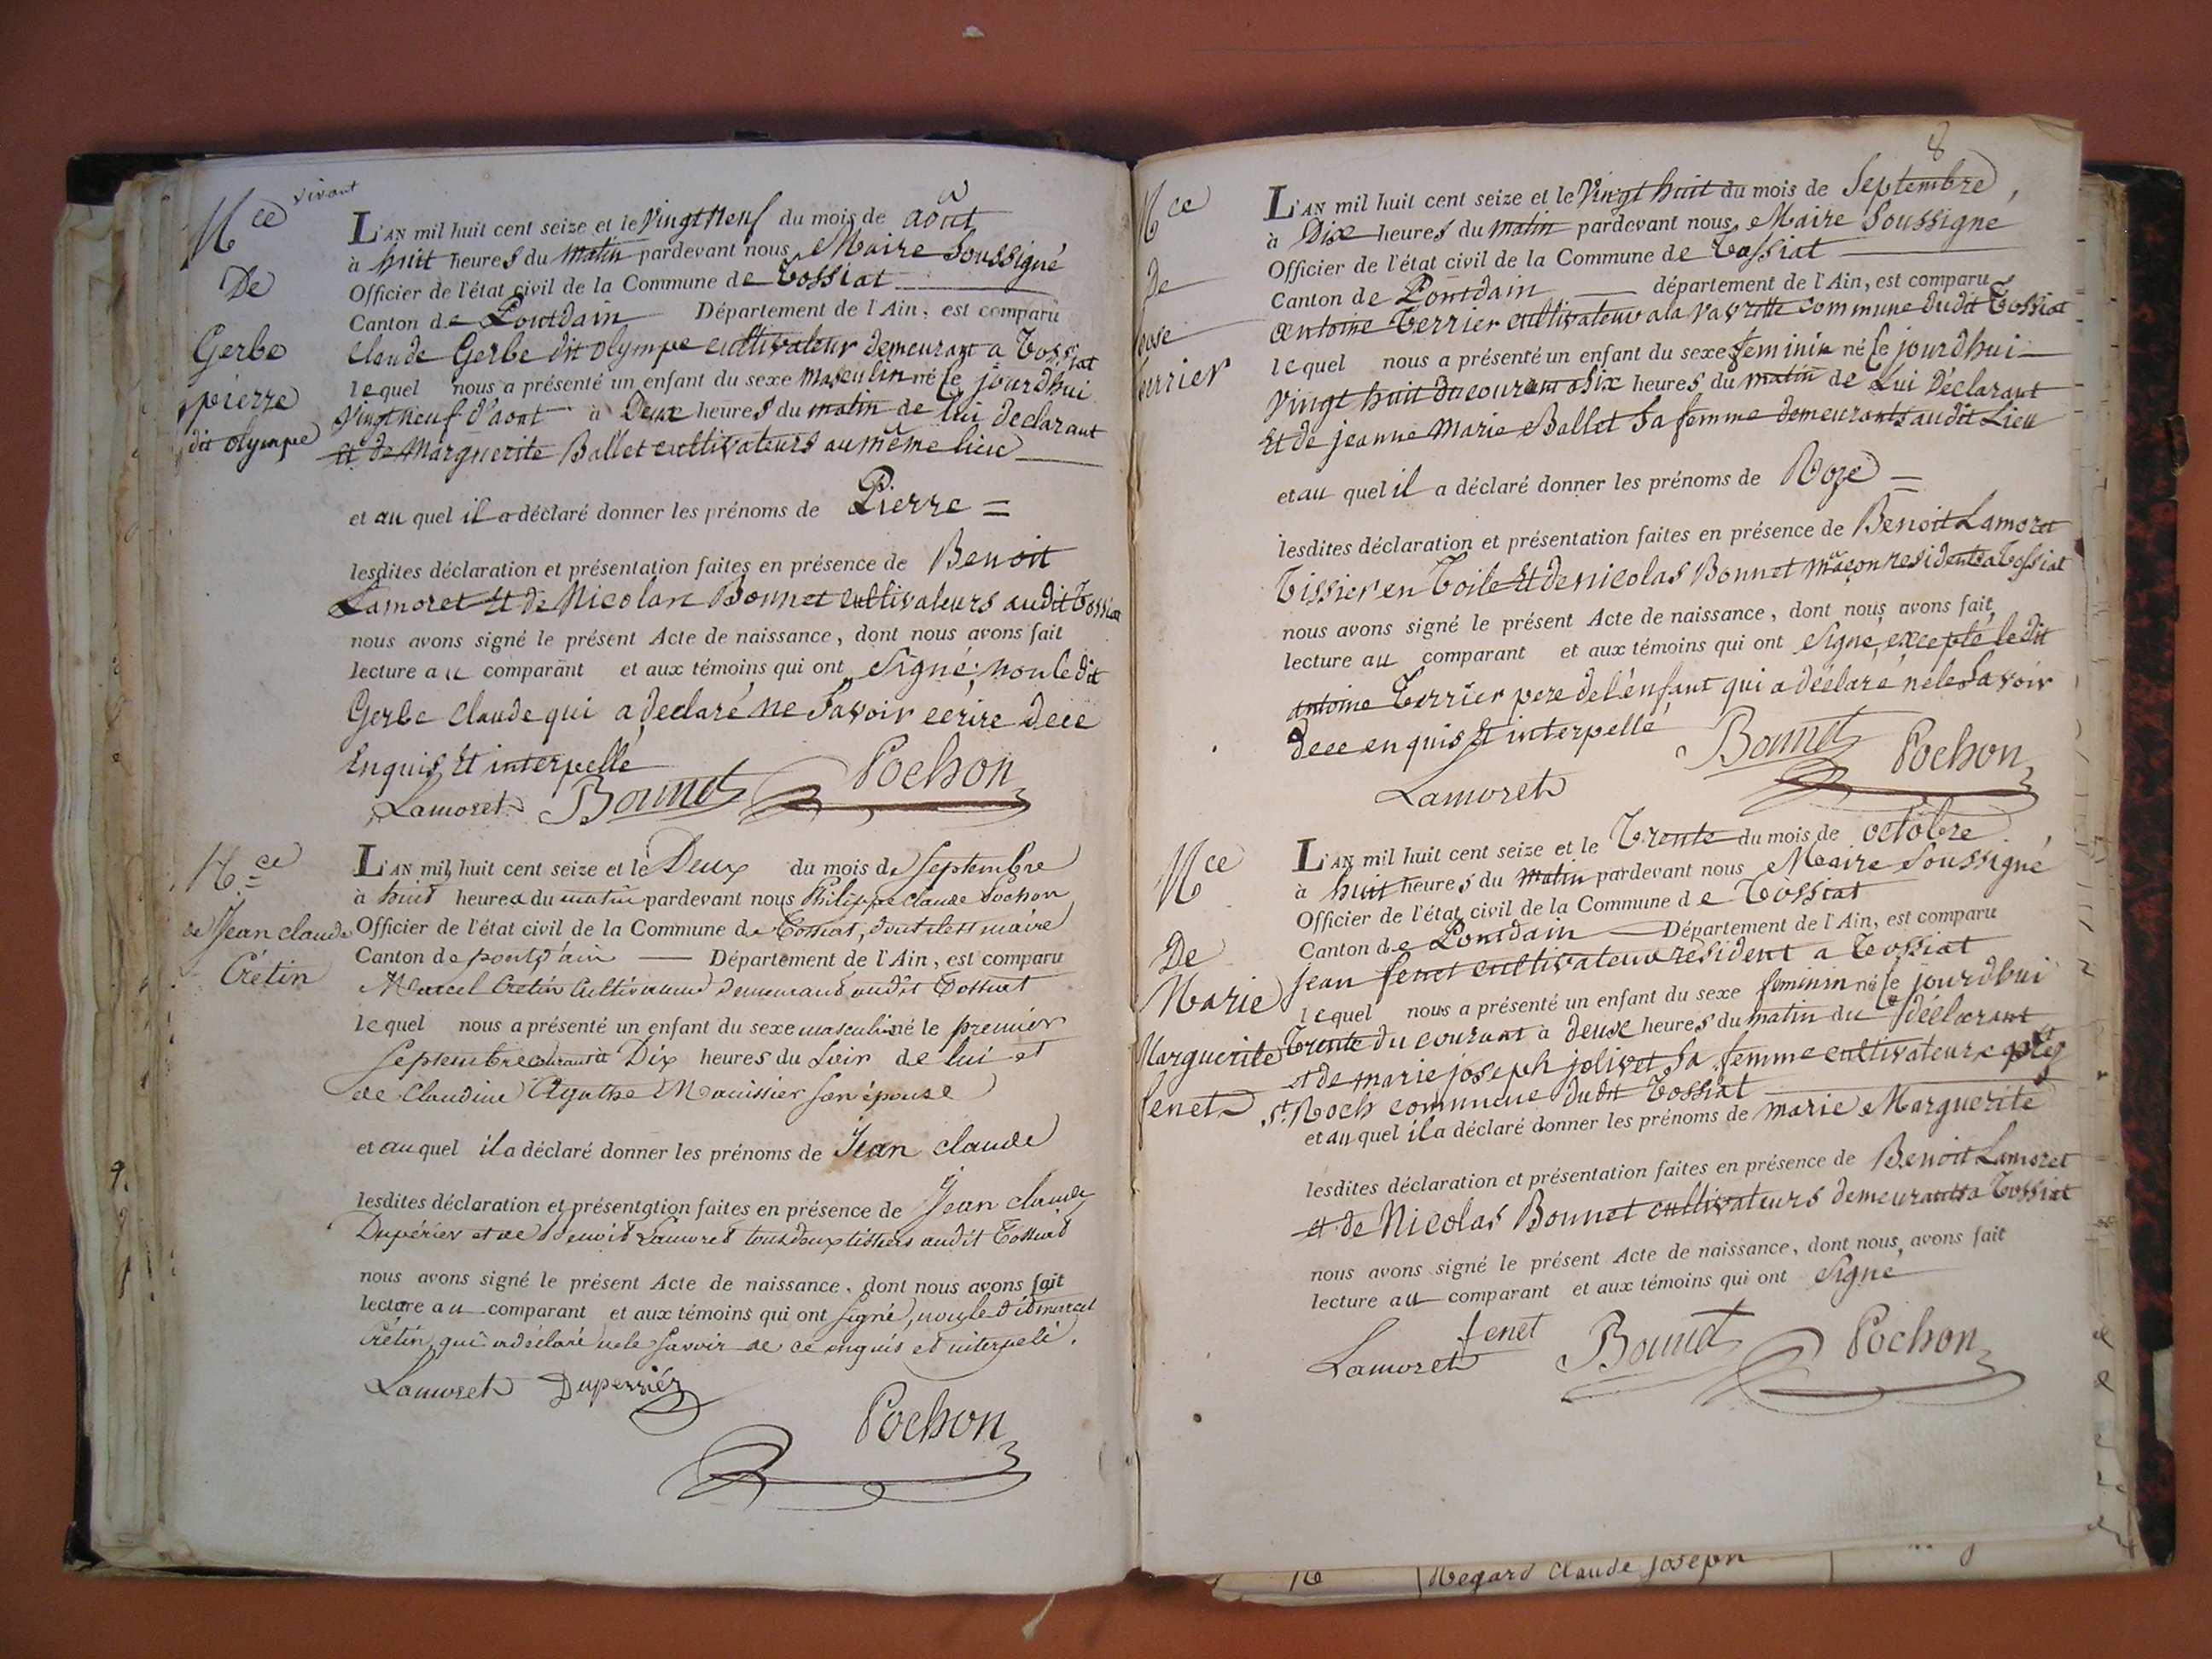 vivant
Nce
De
Gerbe
pierre
dit olympe
L'AN mil huit cent seize et le Vingt Neuf du mois de août
à huit heures du matin pardevant nous Maire Soussigné
Officier de l'état civil de la Commune de Tossiat
Canton de Pontdain Département de l'Ain, est comparu
Claude Gerbe dit olympe cultivateur demeurant a Tossiat
lequel nous a présenté un enfant du sexe masculin né ce jourdhui
Vingt neuf d'aout à Deux heures du matin de lui declarant
et de Marguerite Ballet cultivateurs au même lieu
et au quel il a déclaré donner les prénoms de Pierre =
lesdites déclaration et présentation faites en présence de Benoit
Lamoret Et de Nicolas Bonnet cultivateurs audit Tossiat
nous avons signé le présent Acte de naissance, dont nous avons fait
lecture au comparant et aux témoins qui ont Signé, non le dit
Gerbe Claude qui a declaré ne Savoir ecrire dece
Enquis Et interpellé
Lamoret Bonnet Pochon
Nce
de Jean claude
Crétin
L'AN mil huit cent seize et le Deux du mois de Septembre
à huit heures du matin pardevant nous Philippe Claude Pochon
Officier de l'état civil de la Commune de Tossiat, dont il est maire
Canton de pont d'ain Département de l'Ain, est comparu
Marcel Cretin Cultivateur demeurant audit Tossiat
lequel nous a présenté un enfant du sexe masculin né le premier
Septembre courant à Dix heures du Soir de lui et
de Claudine Agathe Manissier son épouse
et au quel il a déclaré donner les prénoms de Jean claude
lesdites déclaration et présentation faites en présence de Jean claude
Dupérier et de Benoit Lamoret tous deux tissiers audit Tossiat
nous avons signé le présent Acte de naissance, dont nous avons fait
lecture au comparant et aux témoins qui ont signé, non le dit marcel
Crétin, qui a déclaré ne le Savoir de ce enquis et interpelé.
Lamoret Duperriér
Pochon
8
Nce
De
Rose
Terrier
L'AN mil huit cent seize et le Vingt huit du mois de Septembre,
à Dix heures du matin pardevant nous Maire Soussigné
Officier de l'état civil de la Commune de Tossiat
Canton de Pontdain département de l'Ain, est comparu
Antoine Terrier cultivateur a la Vavrette commune dudit Tossiat
lequel nous a présenté un enfant du sexe feminin né ce jourdhui
Vingt huit du courant a Six heures du matin de Lui Déclarant
Et de jeanne Marie Ballet Sa femme demeurants audit Lieu
et au quel il a déclaré donner les prénoms de Roze =
lesdites déclaration et présentation faites en présence de Benoit Lamoret
Tissier en Toile Et de nicolas Bonnet maçon residents a Tossiat
nous avons signé le présent Acte de naissance, dont nous avons fait
lecture au comparant et aux témoins qui ont Signé, excepté le dit
antoine Terrier pere de l'énfant qui a déclaré ne le Savoir
dece enquis Et interpellé
Lamoret Bonnet Pochon
Nce
De
Marie
Marguerite
fenet
L'AN mil huit cent seize et le Trente du mois de octobre
à huit heures du matin pardevant nous Maire Soussigné
Officier de l'état civil de la Commune de Tossiat
Canton de Pontdain Département de l'Ain, est comparu
jean fenet cultivateur resident a Tossiat
lequel nous a présenté un enfant du sexe feminin né ce jourdhui
Trente du courant à deux heures du matin du déclarant
et de marie joseph jolivet Sa femme cultivateurs
St. Roch commune dudit Tossiat
et au quel il a déclaré donner les prénoms de marie Marguerite
lesdites déclaration et présentation faites en présence de Benoit Lamoret
et de Nicolas Bonnet cultivateurs demeurants a Tossiat
nous avons signé le présent Acte de naissance, dont nous avons fait
lecture au comparant et aux témoins qui ont Signé
Lamoret fenet Bonnet Pochon
16 Regard Claude Joseph